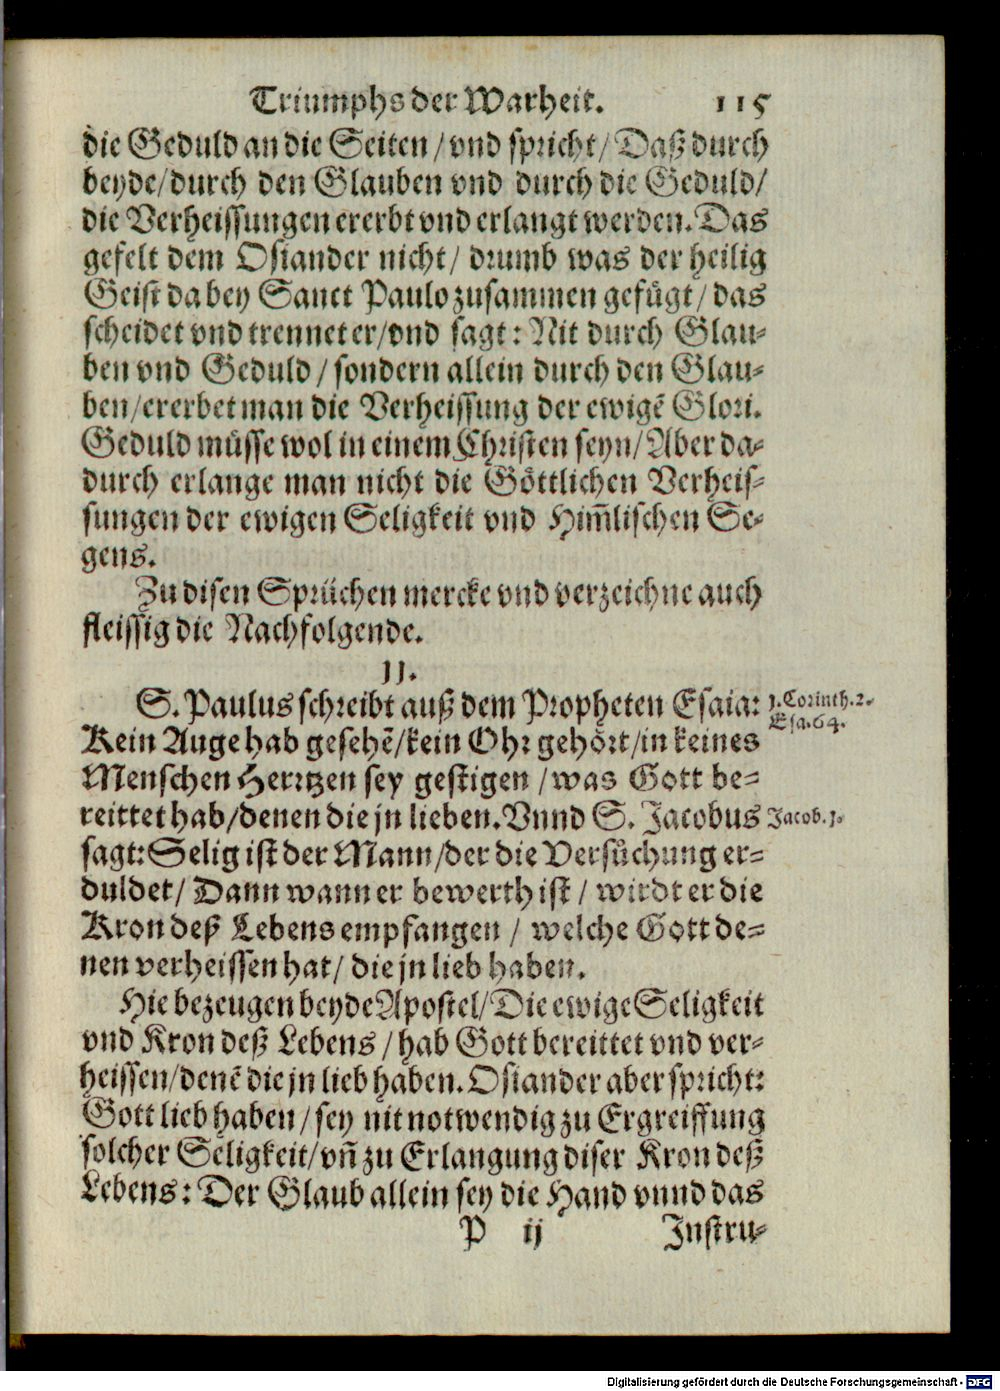 Triumphs der Warheit. 115
die Geduld an die Seiten / vnd spricht / Daß durch
beyde/durch den Glauben vnd durch die Geduld/
die Verheissungen ererbt vnd erlangt werden. Das
gefelt dem Osiander nicht / drumb was der heilig
Geist da bey Sanct Paulo zusammen gefügt / das
scheidet vnd trennet er/vnd sagt: Nit durch Glau-
ben vnd Geduld / sondern allein durch den Glau-
ben/ererbet man die Verheissung der ewigẽ Glori.
Geduld müsse wol in einem Christen seyn/Aber da-
durch erlange man nicht die Göttlichen Verheis-
sungen der ewigen Seligkeit vnd Him̃lischen Se-
gens.
Zu disen Sprüchen mercke vnd verzeichne auch
fleissig die Nachfolgende.
II.
S. Paulus schreibt auß dem Propheten Esaia: 1. Corinth. 2.
Esa. 64.
Kein Auge hab gesehẽ/kein Ohr gehört/in keines
Menschen Herrtzen sey gestigen / was Gott be-
reittet hab/denen die jn lieben. Vnnd S. Jacobus Jacob. 1.
sagt: Selig ist der Mann/der die Versůchung er-
duldet/ Dann wann er bewerth ist / wirdt er die
Kron deß Lebens empfangen / welche Gott de-
nen verheissen hat/ die jn lieb haben.
Hie bezeugen beyde Apostel/Die ewige Seligkeit
vnd Kron deß Lebens / hab Gott bereittet vnd ver-
heissen/denẽ die jn lieb haben. Osiander aber spricht:
Gott lieb haben / sey nit notwendig zu Ergreiffung
solcher Seligkeit/vñ zu Erlangung diser Kron deß
Lebens: Der Glaub allein sey die Hand vnnd das
P ij Instru-
Digitalisierung gefördert durch die Deutsche Forschungsgemeinschaft - DFG